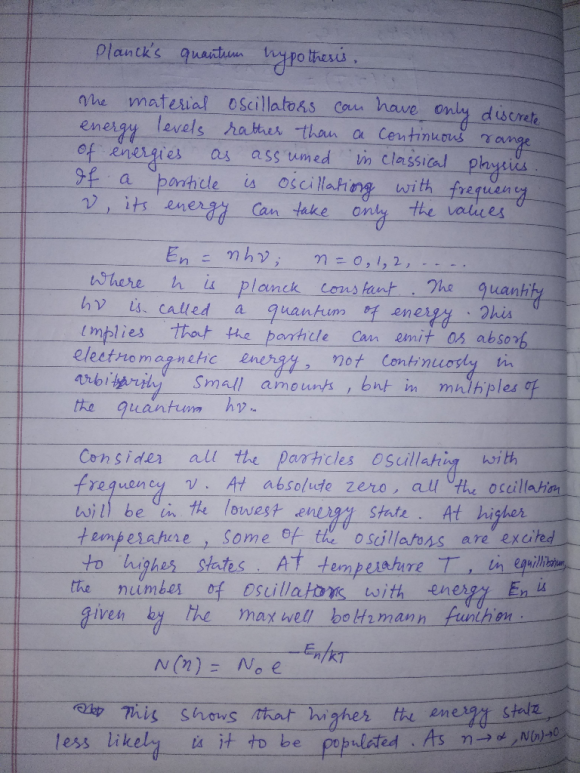 Planck's quantum hypothesis.
The material oscillators can have only discrete
energy levels rather than a continuous range
of energies as assumed in classical physics.
If a particle is oscillating with frequency
ν, its energy can take only the values
En = nhν; n = 0, 1, 2, - - - -.
Where h is planck constant. The quantity
hν is called a quantum of energy. This
implies that the particle can emit or absorb
electromagnetic energy, not continuosly in
arbitrarily small amounts, but in multiples of
the quantum hν.
Consider all the particles oscillating with
frequency ν. At absolute zero, all the oscillation
will be in the lowest energy state. At higher
temperature, some of the oscillators are excited
to higher states. At temperature T, in equillibrium
the number of oscillators with energy En is
given by the maxwell boltzmann function.
N(n) = N₀ e^-En/KT
This shows that higher the energy state,
less likely is it to be populated. As n→∝, N(n)→0